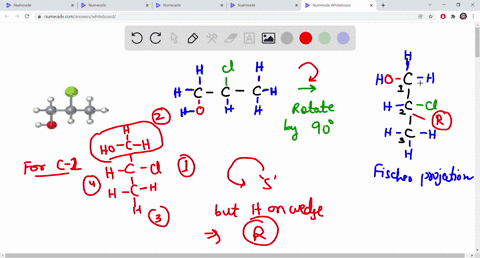 Numerade
Numerade
Numerade
Numerade
Numerade Whiteboard
numerade.com/answers/whiteboard/
H Cl H
H-C-C-C-H
O H H
H
Rotate
by 90°
H
HO-C-H
1
H-C-Cl
2
R
H-C-H
3
H
Fischer projection
2
H
HO-C-H
For C-2
H-C-Cl
1
4
H-C-H
H
3
'S'
but H on wedge
⇒ R